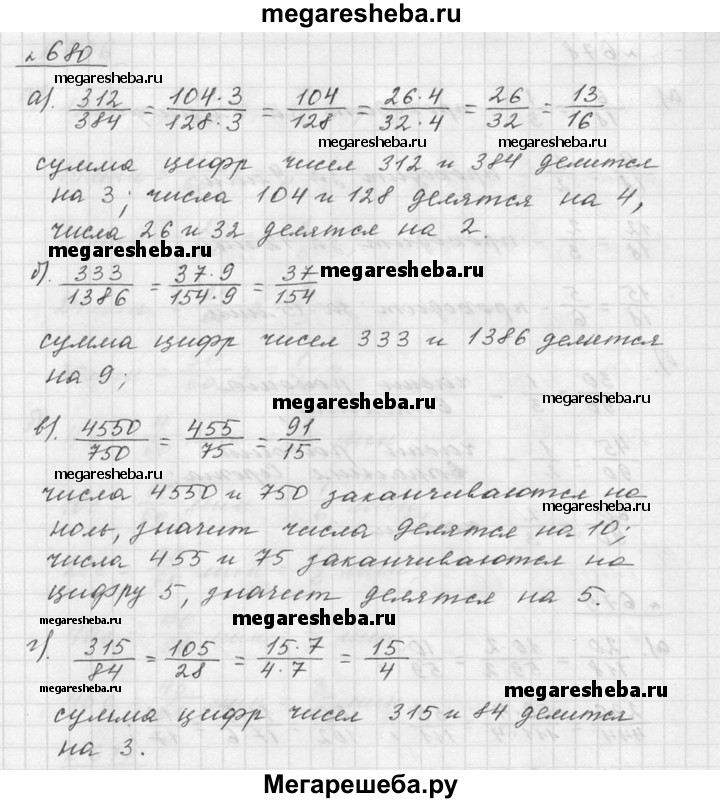 megaresheba.ru
№680
megaresheba.ru
а). 312/384 = 104·3/128·3 = 104/128 = 26·4/32·4 = 26/32 = 13/16
megaresheba.ru megaresheba.ru
сумма цифр чисел 312 и 384 делится
на 3; числа 104 и 128 делятся на 4,
числа 26 и 32 делятся на 2.
megaresheba.ru megaresheba.ru
б). 333/1386 = 37·9/154·9 = 37/154 megaresheba.ru
сумма цифр чисел 333 и 1386 делится
на 9;
megaresheba.ru
в). 4550/750 = 455/75 = 91/15
megaresheba.ru megaresheba.ru
числа 4550 и 750 заканчиваются на
ноль, значит числа делятся на 10;
megaresheba.ru
числа 455 и 75 заканчиваются на
цифру 5, значит делятся на 5.
megaresheba.ru megaresheba.ru
г). 315/84 = 105/28 = 15·7/4·7 = 15/4
megaresheba.ru megaresheba.ru
сумма цифр чисел 315 и 84 делится
на 3.
Мегарешеба.ру